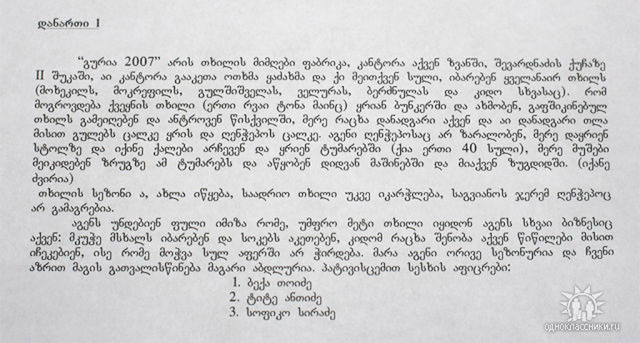 დანართი I
"გურია 2007" არის თხილის მიმღები ფაბრიკა, კანტორა აქვენ ზვანში, შევარდნაძის ქუჩაზე
II შუკაში, აი კანტორა გააკეთა ოთხმა ყაძახმა და ქი მეითქვენ სული, იბარებენ ყველანაირ თხილს
(მოხეკილს, მოკრეფილს, გულშიშველას, ველურას, ბერძნულას და კიდო სხვასაც). რომ
მოგროვდება ქვეყნის თხილი (ერთი რვაი ტონა მაინც) ყრიან ბუნკერში და ახმობენ, გაფშიკინებულ
თხილს გამეილებენ და ანტროვენ წისქვილში, მერე რაცხა დანადგარი აქვენ და აი დანადგარი თლა
მისით გულებს ცალკე ყრის და ღენჭეპოს ცალკე. აგენი ღენჭეპოსაც არ ზარალობენ, მერე დაყრიენ
სტოლზე და იქინე ქალები არჩევენ და ყრიენ ტუმარებში (ქია ერთი 40 სული), მერე მუშები
მეიკიდებენ ზრუგზე ამ ტუმარებს და აწყობენ დიდვან მაშინებში და მიაქვენ ზუგდიდში. (იქანე
ძვირია)
თხილის სეზონი ა, ახლა იწყება, საადრიო თხილი უკვე იკარჭლება, საგვიანოს ჯერემ ღენჭეპოც
არ გამაგრებია.
აგენს უნდებიენ ფული იმიზა რომე, უმფრო მეტი თხილი იყიდონ აგენს სხვაი ბიზნესიც
აქვენ: მკუჭე მსხალს იბარებენ და სოკებს აკეთებენ, კიდომ რაცხა შენობა აქვენ წიწილები მისით
იჩეკებიენ, ისე რომე მოჭვა სულ აფერში არ ჭირდება. მარა აგენი ორივე სეზონურია და ჩვენი
აზრით მაგის გათვალისწინება მაგარი აბდლურია. პატივისცემით სესხის აფიცრები:
1. ბექა თოიძე
2. ტიტე ანთიძე
3. სოფიკო სირაძე
одноклассники.ru